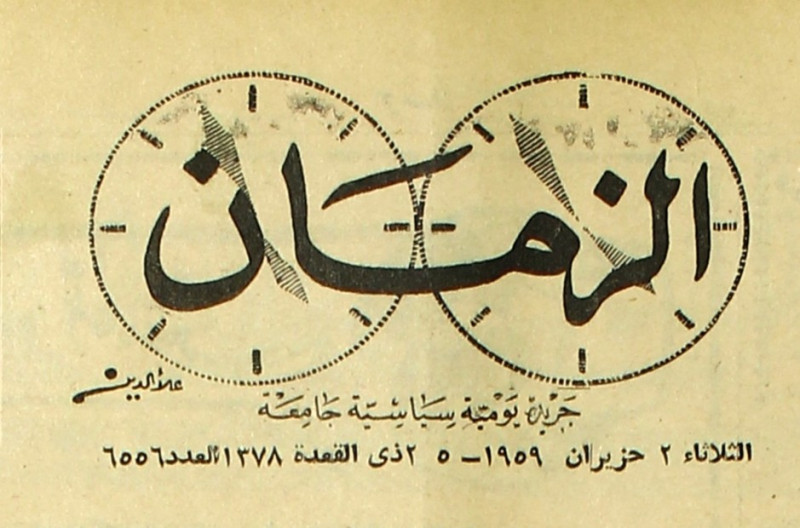 الزمان
علاء الدين
جريدة يومية سياسية جامعة
الثلاثاء ٢ حزيران ١٩٥٩ – ٢٥ ذى القعدة ١٣٧٨ العدد ٦٥٥٦